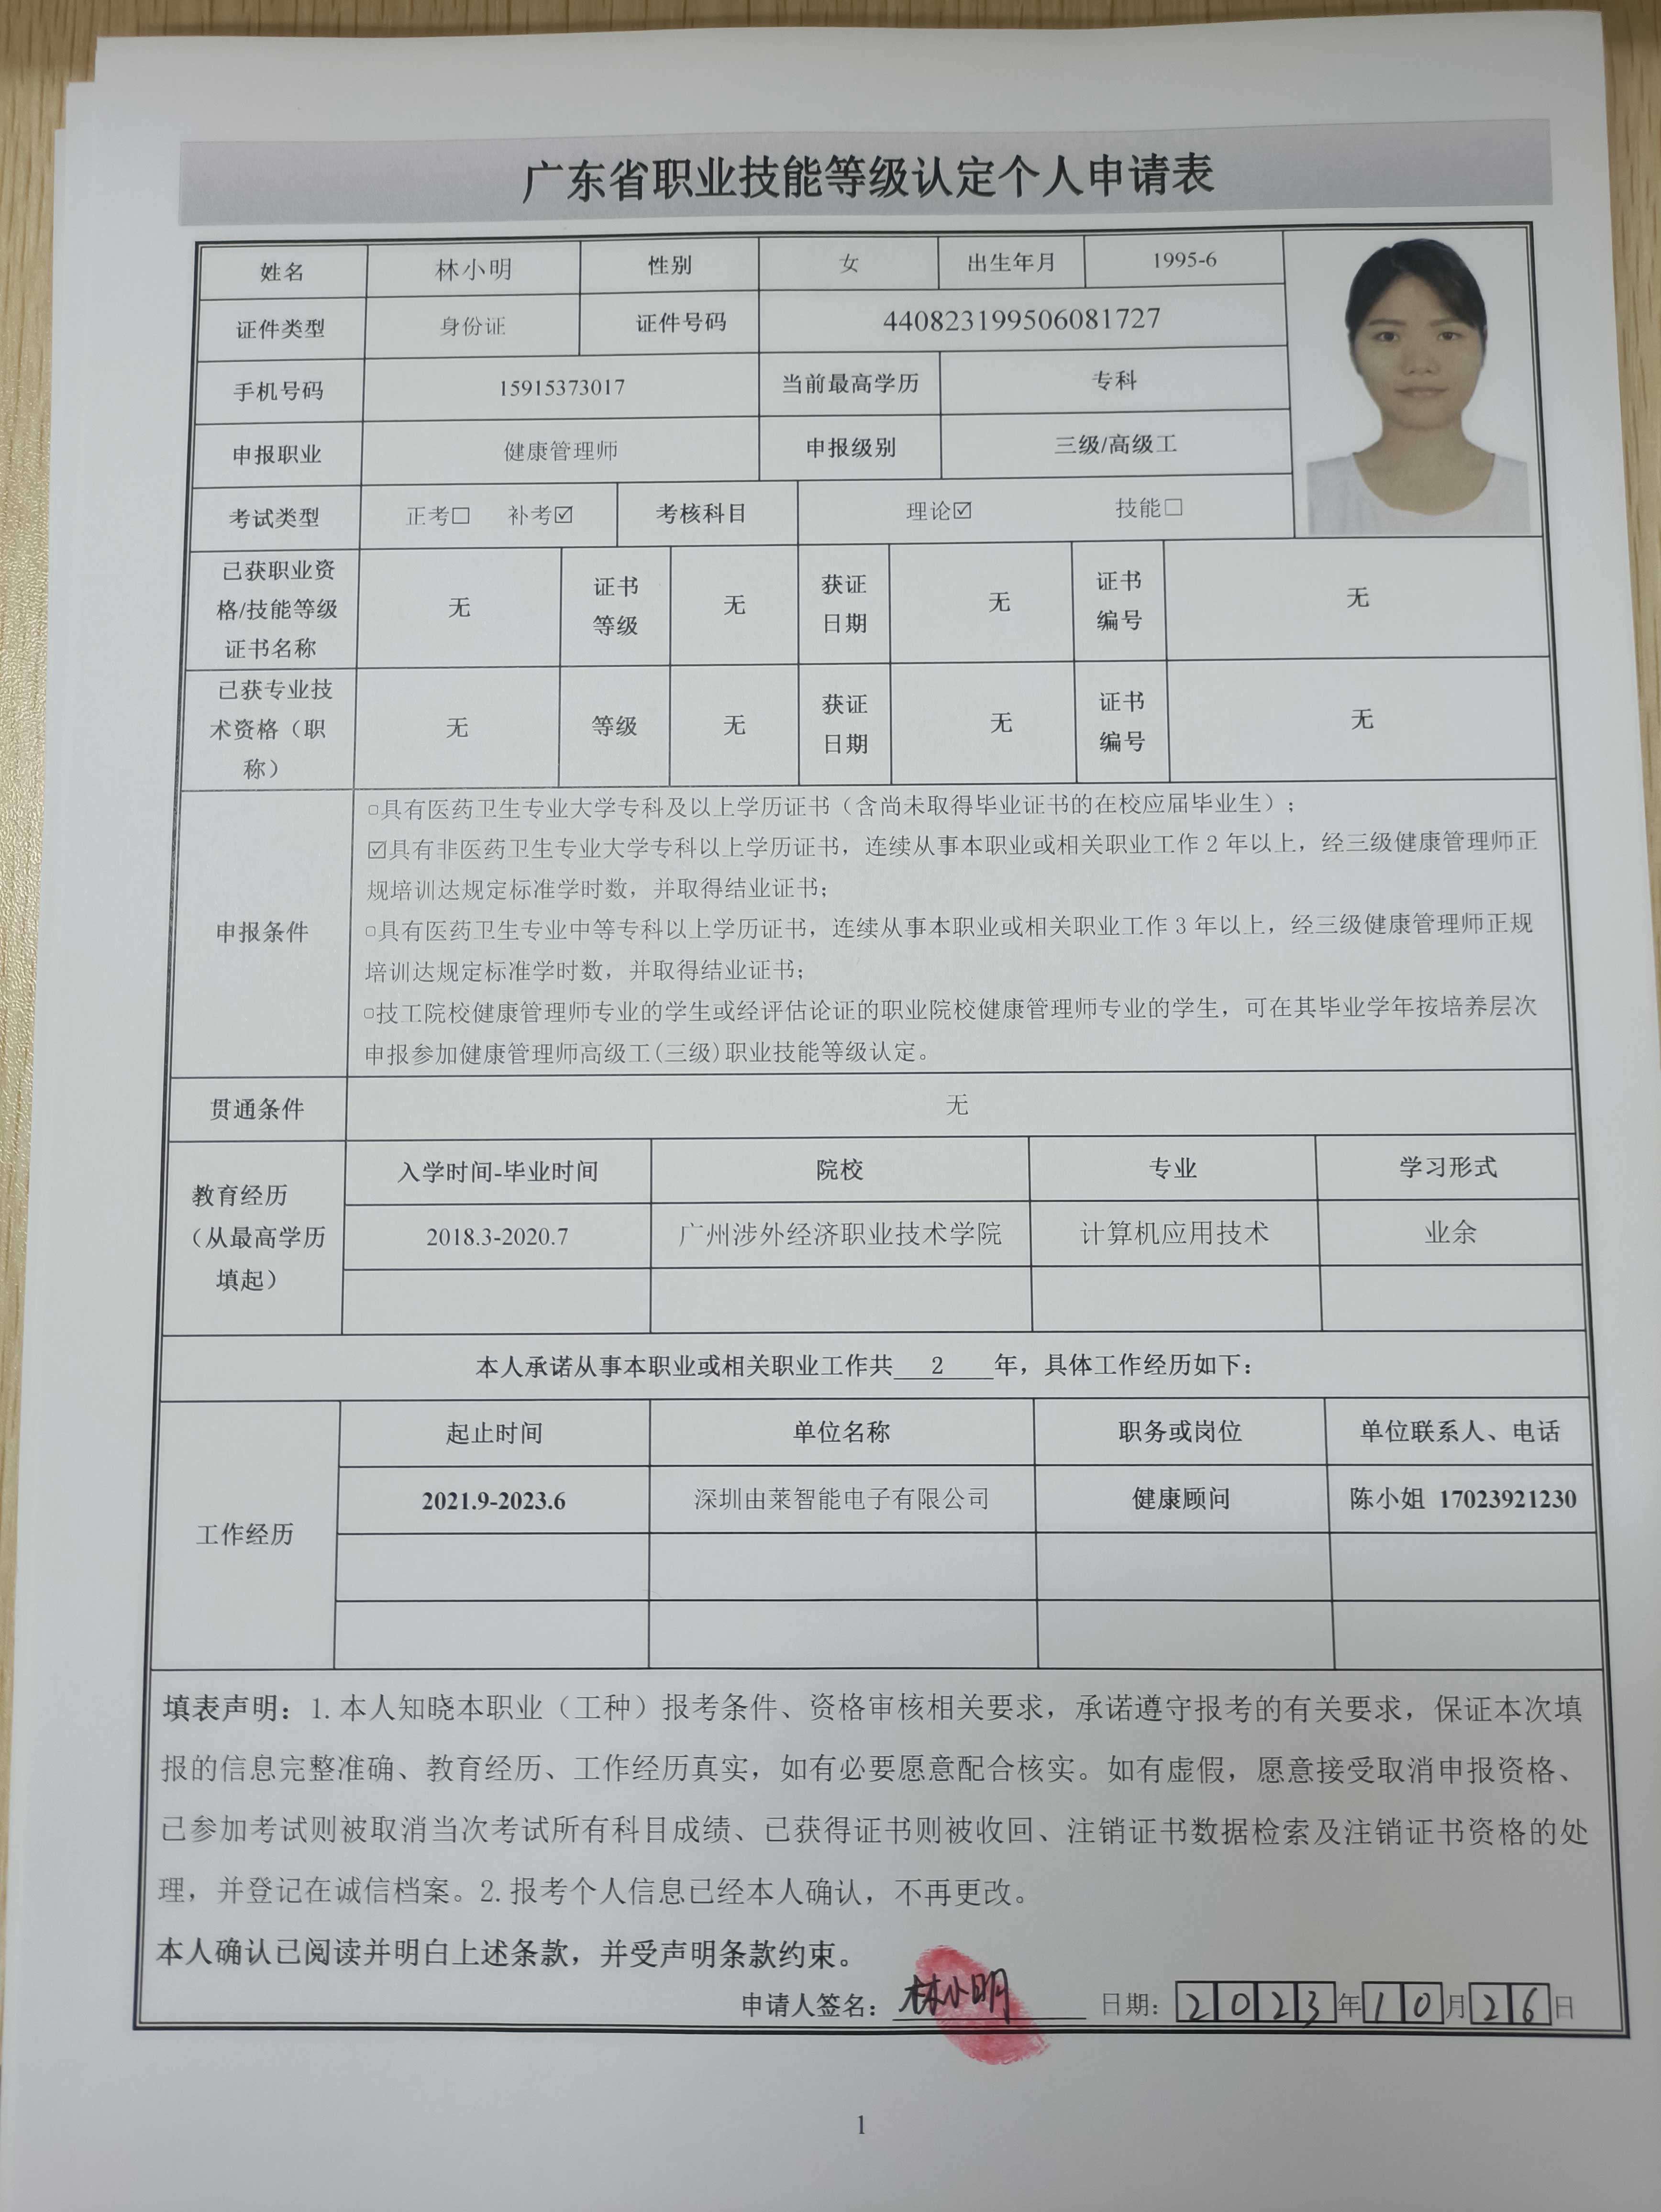 广东省职业技能等级认定个人申请表
姓名 林小明 性别 女 出生年月 1995-6
证件类型 身份证 证件号码 440823199506081727
手机号码 15915373017 当前最高学历 专科
申报职业 健康管理师 申报级别 三级/高级工
考试类型 正考□ 补考☑ 考核科目 理论☑ 技能□
已获职业资格/技能等级证书名称 无 证书等级 无 获证日期 无 证书编号 无
已获专业技术资格（职称） 无 等级 无 获证日期 无 证书编号 无
申报条件
□具有医药卫生专业大学专科及以上学历证书（含尚未取得毕业证书的在校应届毕业生）；
☑具有非医药卫生专业大学专科以上学历证书，连续从事本职业或相关职业工作 2 年以上，经三级健康管理师正
规培训达规定标准学时数，并取得结业证书；
□具有医药卫生专业中等专科以上学历证书，连续从事本职业或相关职业工作 3 年以上，经三级健康管理师正规
培训达规定标准学时数，并取得结业证书；
□技工院校健康管理师专业的学生或经评估论证的职业院校健康管理师专业的学生，可在其毕业学年按培养层次
申报参加健康管理师高级工(三级)职业技能等级认定。
贯通条件 无
教育经历（从最高学历填起）
入学时间-毕业时间 院校 专业 学习形式
2018.3-2020.7 广州涉外经济职业技术学院 计算机应用技术 业余
本人承诺从事本职业或相关职业工作共 2 年，具体工作经历如下：
工作经历
起止时间 单位名称 职务或岗位 单位联系人、电话
2021.9-2023.6 深圳由莱智能电子有限公司 健康顾问 陈小姐 17023921230
填表声明：1.本人知晓本职业（工种）报考条件、资格审核相关要求，承诺遵守报考的有关要求，保证本次填
报的信息完整准确、教育经历、工作经历真实，如有必要愿意配合核实。如有虚假，愿意接受取消申报资格、
已参加考试则被取消当次考试所有科目成绩、已获得证书则被收回、注销证书数据检索及注销证书资格的处
理，并登记在诚信档案。2.报考个人信息已经本人确认，不再更改。
本人确认已阅读并明白上述条款，并受声明条款约束。
申请人签名：林小明 日期：2023年10月26日
1